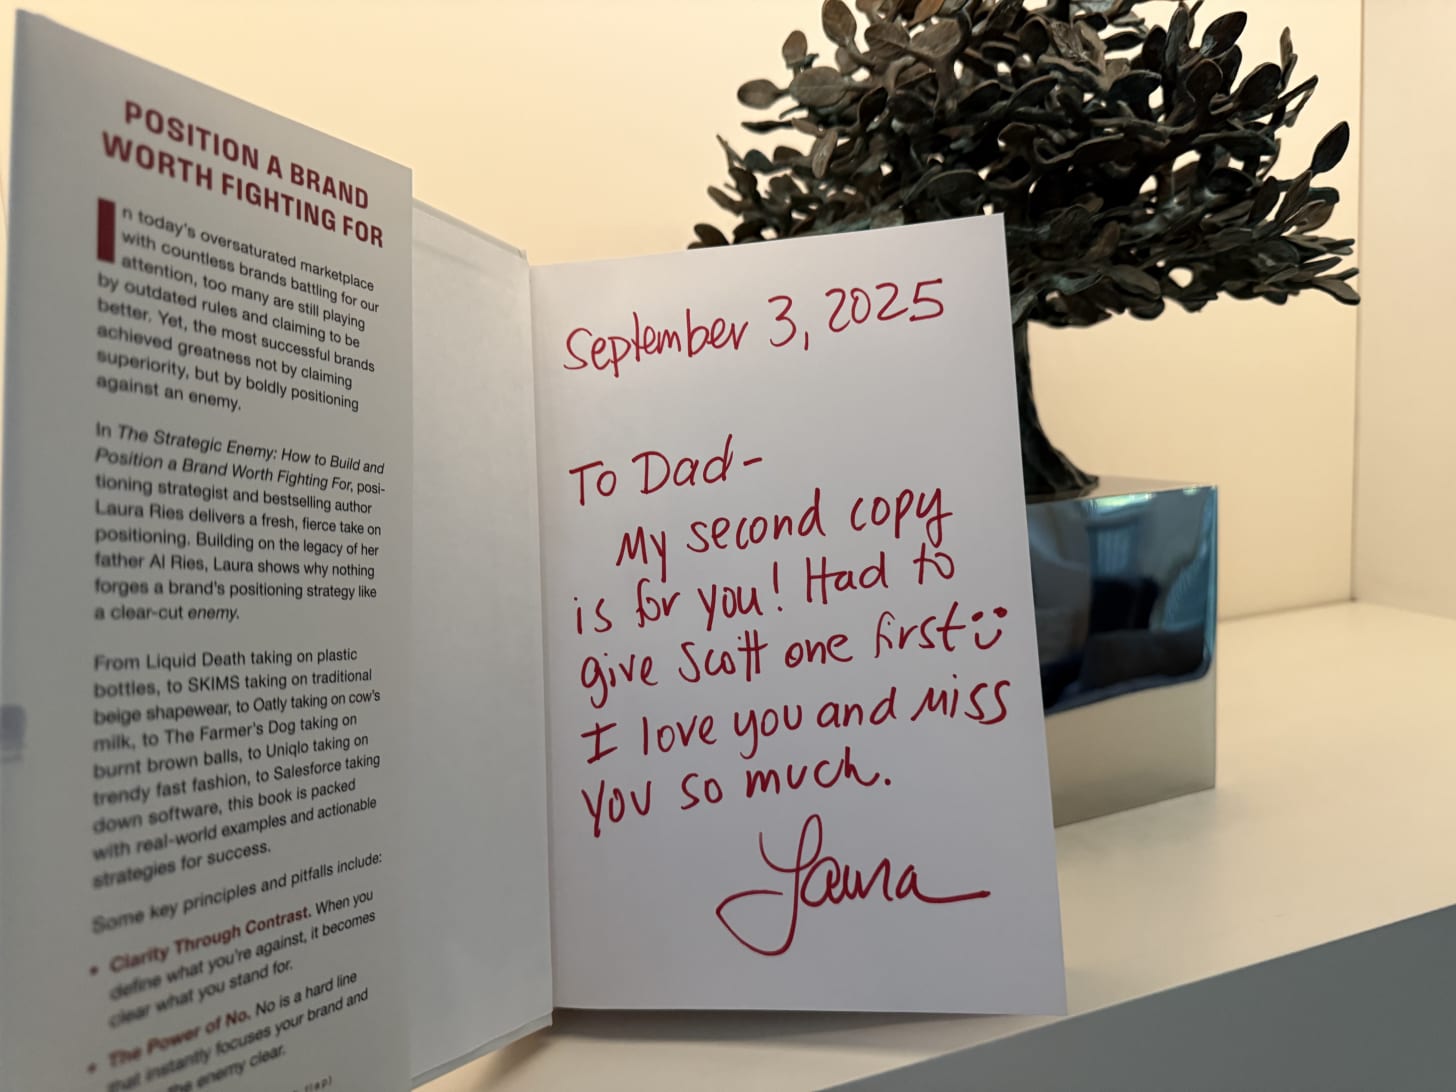 POSITION A BRAND
WORTH FIGHTING FOR
In today's oversaturated marketplace
with countless brands battling for our
attention, too many are still playing
by outdated rules and claiming to be
better. Yet, the most successful brands
achieved greatness not by claiming
superiority, but by boldly positioning
against an enemy.
In The Strategic Enemy: How to Build and
Position a Brand Worth Fighting For, posi-
tioning strategist and bestselling author
Laura Ries delivers a fresh, fierce take on
positioning. Building on the legacy of her
father Al Ries, Laura shows why nothing
forges a brand's positioning strategy like
a clear-cut enemy.
From Liquid Death taking on plastic
bottles, to SKIMS taking on traditional
beige shapewear, to Oatly taking on cow's
milk, to The Farmer's Dog taking on
burnt brown balls, to Uniqlo taking on
trendy fast fashion, to Salesforce taking
down software, this book is packed
with real-world examples and actionable
strategies for success.
Some key principles and pitfalls include:
• Clarity Through Contrast. When you
define what you're against, it becomes
clear what you stand for.
• The Power of No. No is a hard line
that instantly focuses your brand and
the enemy clear.
flap)
September 3, 2025
To Dad-
My second copy
is for you! Had to
give Scott one first
I love you and miss
you so much.
Laura